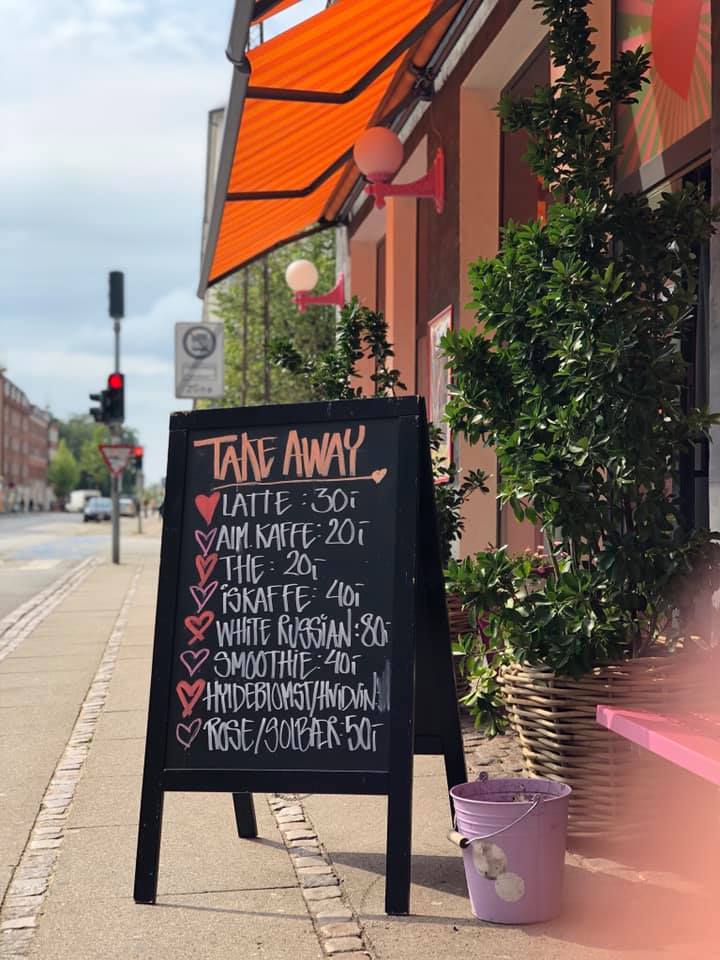 TAKE AWAY
LATTE : 30,-
ALM. KAFFE: 20,-
THE : 20,-
ISKAFFE: 40,-
WHITE RUSSIAN: 80,-
SMOOTHIE: 40,-
HYLDEBLOMST/HVIDVIN
ROSE/SOLBÆR: 50,-
ZONE